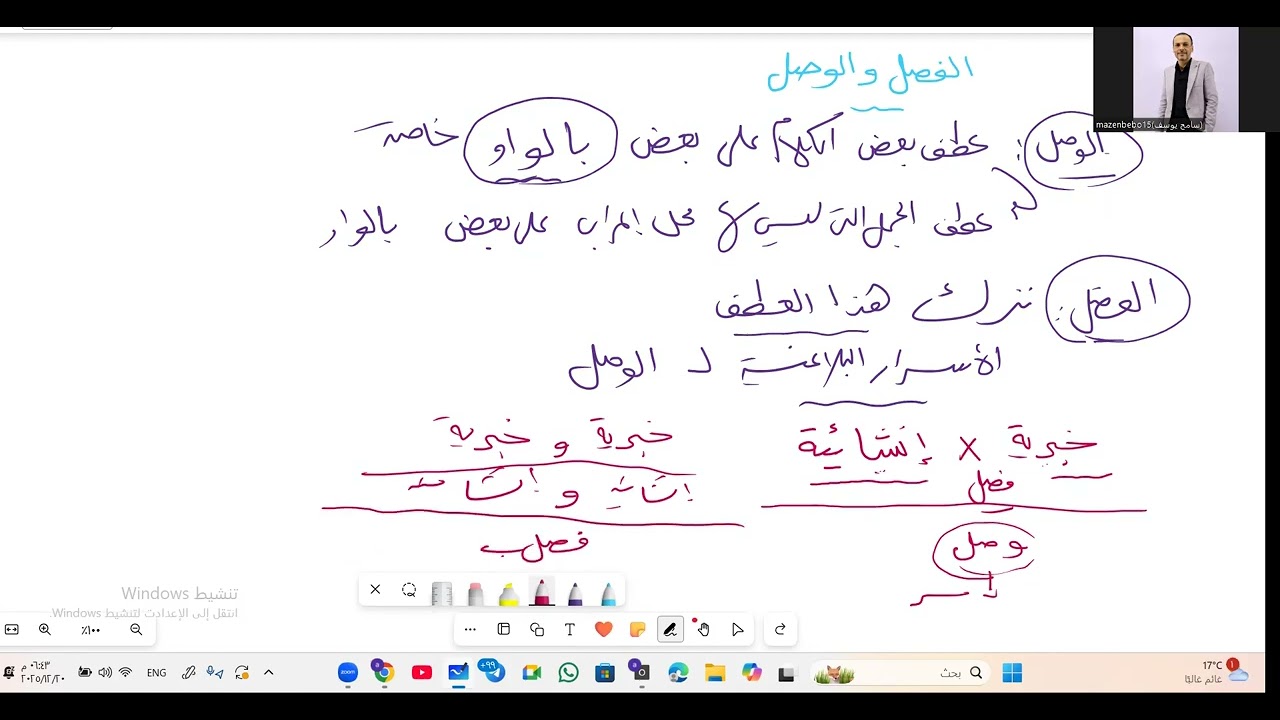 الفصل والوصل
mazenbebo15(سامح يوسف)
الوصل: عطف بعض الكلام على بعض بالواو خاصة
عطف الجمل التي ليس لها محل إعراب على بعض بالواو
الفصل: ترك هذا العطف
الأسرار البلاغية لـ الوصل
خبرية x إنشائية
فصل
وصل
سر
خبرية و خبرية
إنشائية و إنشائية
فصل
تنشيط Windows
انتقل إلى الإعدادت لتنشيط Windows.
٪١٠٠
T
٠٦:٤٣ م
٢٠٢٥/١٢/٢٠
ENG
zoom
a
+٩٩
a
بحث
1
17°C
عائم غالبًا